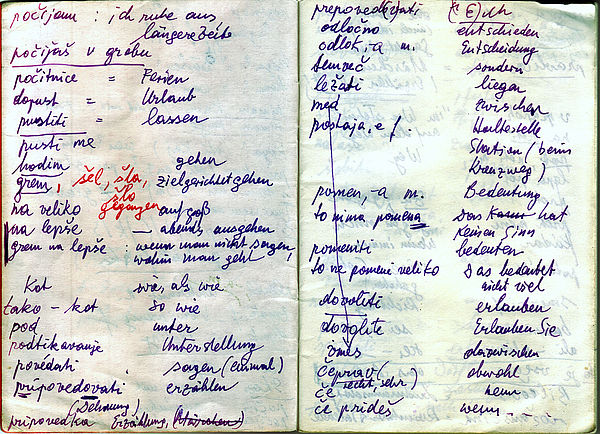 počijam : ich ruhe aus,
längere Zeit
počijaš v grobu
počitnice = Ferien
dopust = Urlaub
pustiti = lassen
pusti me
hodim gehen
grem, šel, šla, zielgerichtet gehen
šlo
gegangen
na veliko auf groß
na lepše — abends ausgehen
grem na lepše : wenn man nicht sagen,
wohin man geht
Kot wie, als wie
tako - kot so wie
pod unter
podtikavanje Unterstellung
povédati sagen (einmal)
pripovedovati erzählen
(Dehnung)
pripovedka Erzählung, (Märchen)
prepoved(ov)ati
odločno entschieden
odlok, -a m. Entscheidung
temveč sondern
ležati liegen
med zwischen
postaja, e f. Haltestelle
Station (beim
Kreuzweg)
pomen, -a m. Bedeutung
to nima pomena Das hat
keinen Sinn
pomeniti bedeuten
to ne pomeni veliko Das bedeutet
nicht viel
dovoliti erlauben
dovolite Erlauben Sie
vmes dazwischen
čeprav ( obwohl
recht, sehr)
če wenn
če prideš wenn ....